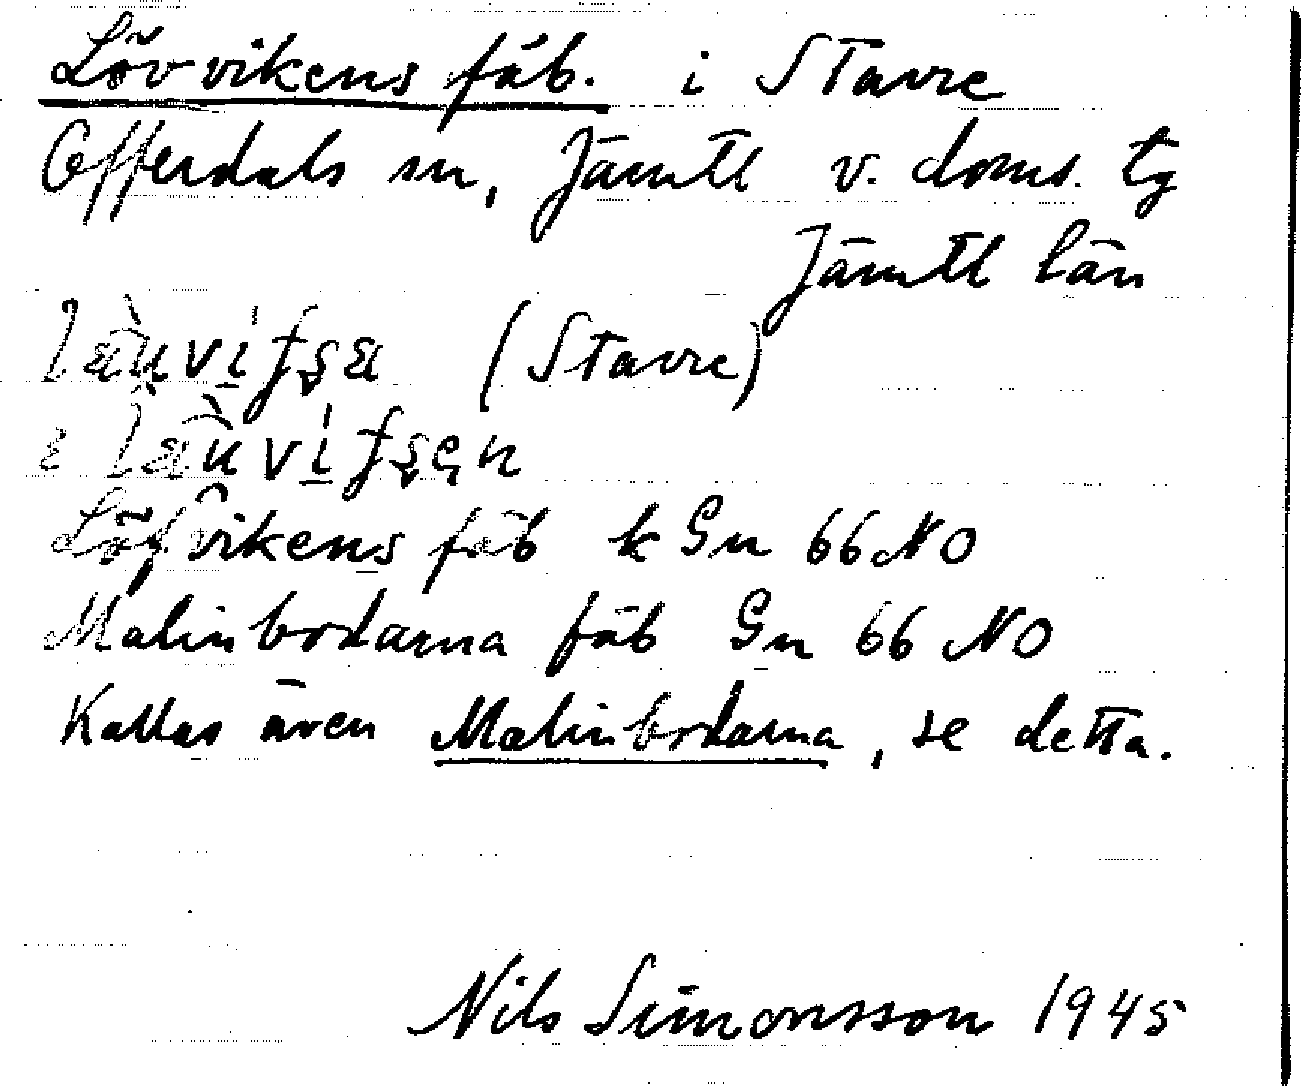 Lövvikens fäb. i Stavre
Offerdals sn, Jämtl v. doms. tg
Jämtl län
(Stavre)
Löfvikens fäb k Gn 66 NO
Malinbodarna fäb Gn 66 NO
Kallas även Malinbodarna, se detta.
Nils Simonsson 1945